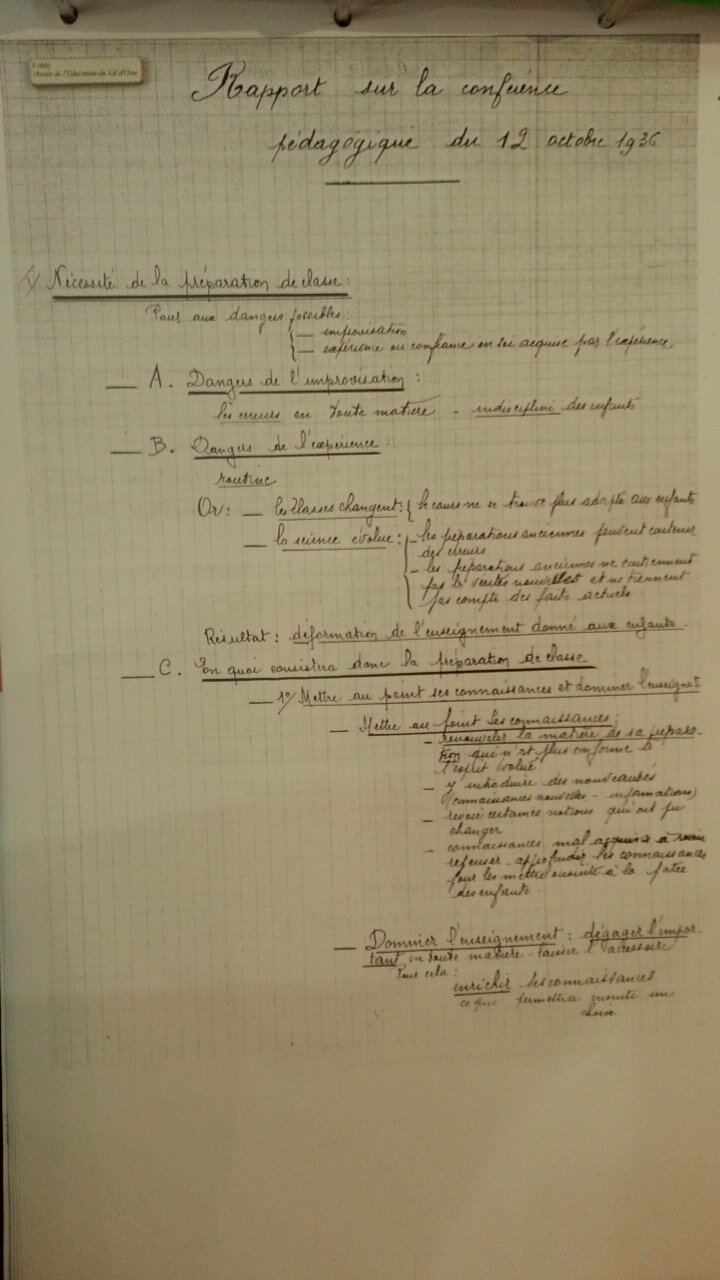 Fonds
Musée de l'Education du Val d'Oise
Rapport sur la conférence
pédagogique du 12 octobre 1936
1/ Nécessité de la préparation de classe :
Parer aux dangers possibles :
— improvisation
— expérience ou confiance en soi acquise par l'expérience
— A. Dangers de l'improvisation :
les erreurs en toute matière - indiscipline des enfants
— B. Dangers de l'expérience :
routine
Or : — les classes changent : { le cours ne se trouve plus adapté aux enfants
— la science évolue : { - les préparations anciennes peuvent contenir
des erreurs
- les préparations anciennes ne contiennent
pas les vérités nouvelles et ne tiennent
pas compte des faits actuels
Résultat : déformation de l'enseignement donné aux enfants.
— C. En quoi consistera donc la préparation de classe
— 1°/ Mettre au point ses connaissances et dominer l'enseignet
— Mettre au point ses connaissances :
- renouveler la matière de sa prépara-
tion qui n'est plus conforme à
l'esprit évolué
- y introduire des nouveautés
(connaissances nouvelles - informations)
- revoir certaines notions qui ont pu
changer
- connaissances mal acquises à revoir
repenser - approfondir les connaissances
pour les mettre ensuite à la portée
des enfants.
— Dominer l'enseignement : dégager l'impor-
tant en toute matière - laisser l'accessoire
Pour cela :
enrichir ses connaissances
ce qui permettra ensuite un
choix